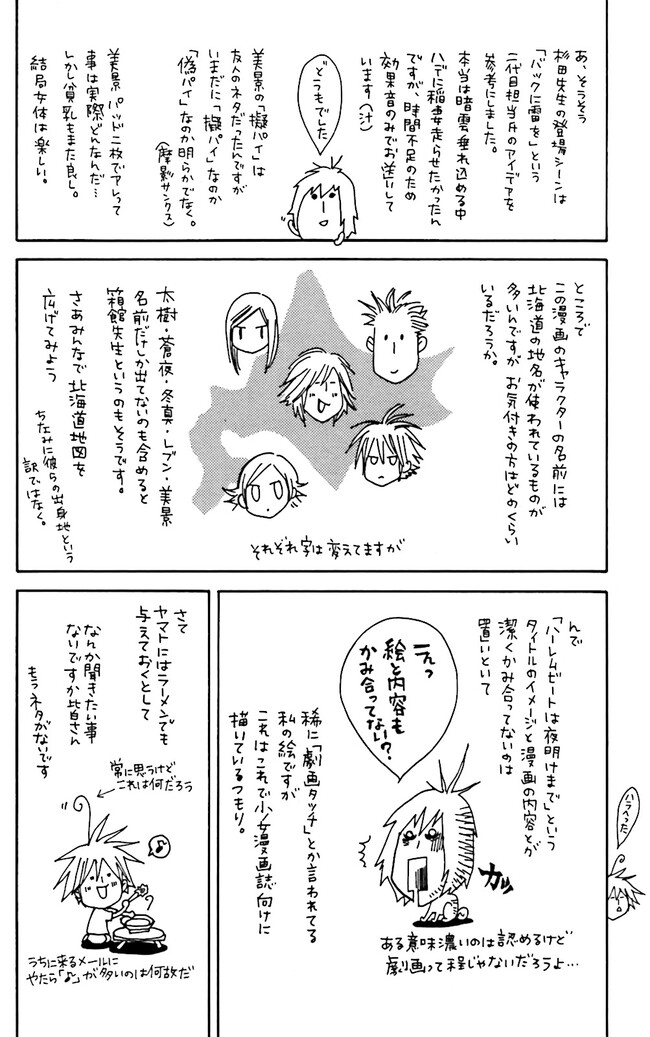 あ、そうそう
杉田先生の登場シーンは
「バックに雷を」という
二代目担当氏のアイデアを
参考にしました。
本当は暗雲垂れ込める中
ハデに稲妻走らせたかったん
ですが、時間不足のため
効果音のみでお送りして
います(汁)
どうもでした
美景の「擬パイ」は
友人のネタだったんですが
いまだに「擬パイ」なのか
「偽パイ」なのか明らかでなく。
(摩影サンクス)
美景パッド二枚でアレって
事は実際どんなんだ…
しかし貧乳もまた良し。
結局女体は楽しい。
ところで
この漫画のキャラクターの名前には
北海道の地名が使われているものが
多いんですが お気付きの方はどのくらい
いるだろうか。
太樹・蒼夜・冬真・レブン・美景
名前だけしか出てないのも含めると
箱館先生というのもそうです。
さあみんなで北海道地図を
広げてみよう
ちなみに彼らの出身地という
訳ではなく。
それぞれ字は変えてますが
んで
「ハーレムビートは夜明けまで」という
タイトルのイメージと漫画の内容とが
潔くかみ合ってないのは
置いといて
えっ
絵と内容も
かみ合って
ない?
稀に「劇画タッチ」とか言われてる
私の絵ですが
これはこれで少女漫画誌向けに
描いているつもり。
ガッ
ある意味濃いのは認めるけど
劇画って程じゃないだろうよ…
ハラへった
さて
ヤマトにはラーメンでも
与えておくとして
なんか聞きたい事
ないですか皆さん
もうネタがないです
常に思うけど
これは何だろう
♪
うちに来るメールに
やたら「♪」が多いのは何故だ